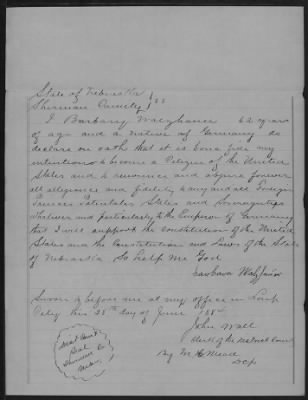 State of Nebraska
Sherman County } SS
I Barbary 62 years
of age and a native of Germany do
declare on oath that it is bona fide my
intentions to become a Citizen of the United
States and to renounce and abjure forever
all allegiance and fidelity to any and all Foreign
Princes Potentates States and Sovereigntys
Whatever and particularly to the Emperor of Germany
that I will support the constitution of the United
States and the Constitution and Laws of the State
of Nebraska So help Me God
Barbara
Sworn to before me at my office in Loup
City this 25th day of June
John Wall
Clerk of the District Court
By M H Mead
Dep
Dist Court
Seal
Sherman Co
Nebr